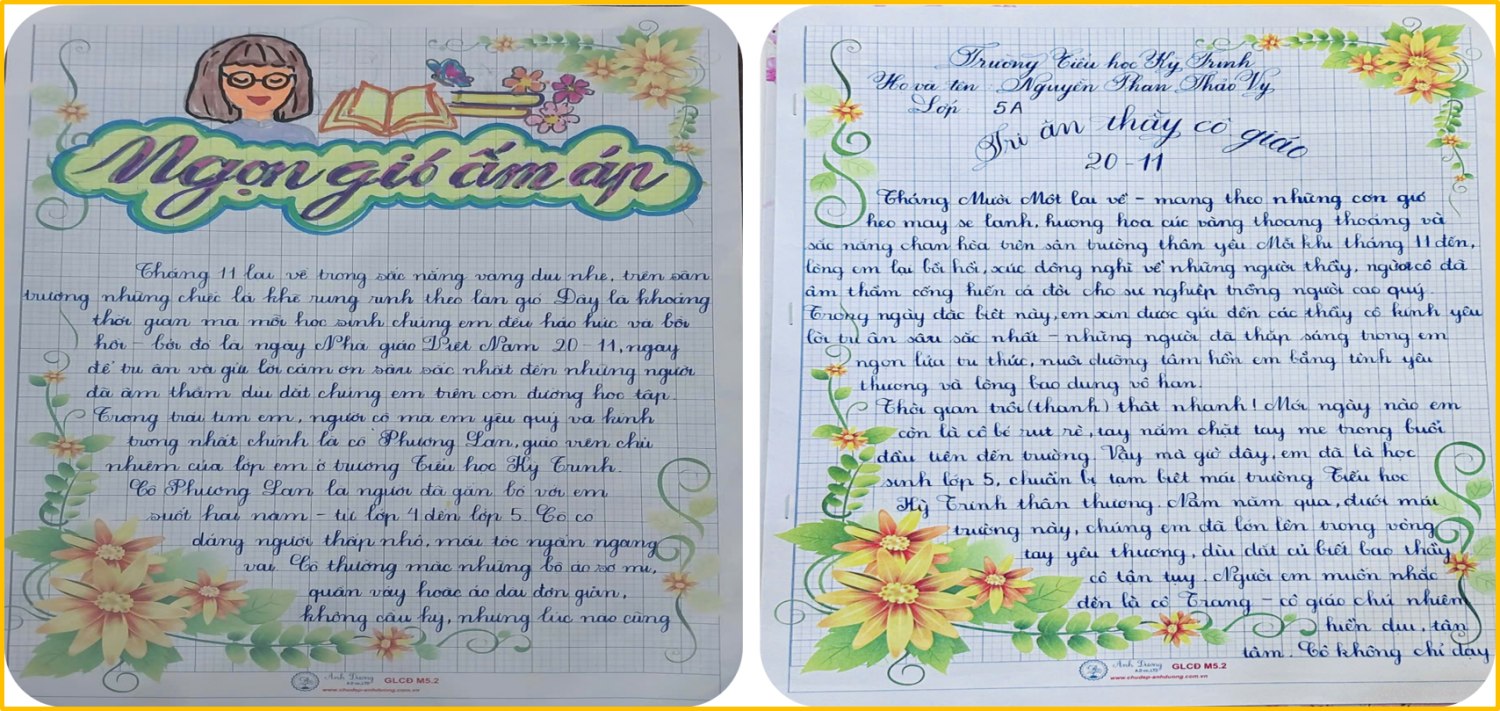 Ngọn gió ấm áp
Tháng 11 lại về trong sắc nắng vàng dịu nhẹ, trên sân
trường những chiếc lá khẽ rung rinh theo làn gió. Đây là khoảng
thời gian mà mỗi học sinh chúng em đều háo hức và bồi
hồi – bởi đó là ngày Nhà giáo Việt Nam 20-11, ngày
để tri ân và gửi lời cảm ơn sâu sắc nhất đến những người
đã âm thầm dìu dắt chúng em trên con đường học tập.
Trong trái tim em, người cô mà em yêu quý và kính
trọng nhất chính là cô Phương Lan, giáo viên chủ
nhiệm của lớp em ở trường Tiểu học Kỳ Trinh.
Cô Phương Lan là người đã gắn bó với em
suốt hai năm – từ lớp 4 đến lớp 5. Cô có
dáng người thấp nhỏ, mái tóc ngắn ngang
vai. Cô thường mặc những bộ áo sơ mi,
quần váy hoặc áo dài đơn giản,
không cầu kỳ, nhưng lúc nào cũng
Ánh Dương
GLCĐ M5.2
www.chudep-anhduong.com.vn
Trường Tiểu học Kỳ Trinh
Họ và tên : Nguyễn Phan Thảo Vy
Lớp 5A
Tri ân thầy cô giáo
20-11
Tháng Mười Một lại về – mang theo những cơn gió
heo may se lạnh, hương hoa cúc vàng thoang thoảng và
sắc nắng chan hòa trên sân trường thân yêu. Mỗi khi tháng 11 đến,
lòng em lại bồi hồi, xúc động nghĩ về những người thầy, người cô đã
âm thầm cống hiến cả đời cho sự nghiệp trồng người cao quý.
Trong ngày đặc biệt này, em xin được gửi đến các thầy cô kính yêu
lời tri ân sâu sắc nhất – những người đã thắp sáng trong em
ngọn lửa tri thức, nuôi dưỡng tâm hồn em bằng tình yêu
thương và lòng bao dung vô hạn.
Thời gian trôi (thanh) thật nhanh! Mới ngày nào em
còn là cô bé rụt rè, tay nắm chặt tay mẹ trong buổi
đầu tiên đến trường. Vậy mà giờ đây, em đã là học
sinh lớp 5, chuẩn bị tạm biệt mái trường Tiểu học
Kỳ Trinh thân thương. Năm năm qua, dưới mái
trường này, chúng em đã lớn lên trong vòng
tay yêu thương, dìu dắt củ biết bao thầy
cô tận tụy. Người em muốn nhắc
đến là cô Trang – cô giáo chủ nhiệm
hiền dịu, tận
tâm. Cô không chỉ dạy
Ánh Dương
GLCĐ M5.2
www.chudep-anhduong.com.vn